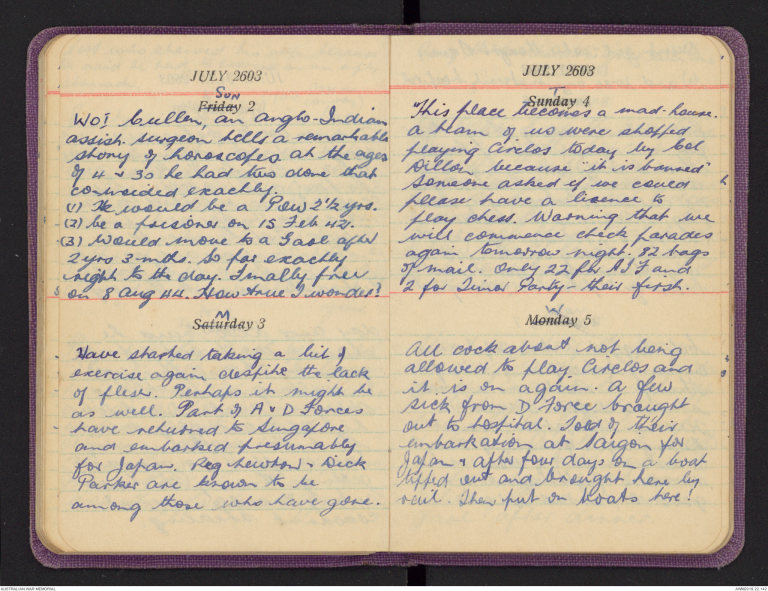 JULY 2603
Sun
Friday 2
WOI Cullen, an Anglo-Indian
assist. surgeon tells a remarkable
story of horoscopes at the ages
of 4 & 30 he had two done that
co-incided exactly.
(1) He would be a POW 2½ yrs.
(2) be a prisoner on 15 Feb 42.
(3) Would move to a Gaol after
2 yrs 3 mths. So far exactly
right to the day. Finally free
on 8 Aug 44. How true I wonder?
M
Saturday 3
Have started taking a bit of
exercise again despite the lack
of flesh. Perhaps it might be
as well. Part of A & D Forces
have returned to Singapore
and embarked presumably
for Japan. Reg Newton & Dick
Parker are known to be
among those who have gone.
JULY 2603
T
Sunday 4
"This place becomes a mad-house.
a team of us were stopped
playing Circlos today by Col
Dillon because "it is banned"
Someone asked if we could
please have a licence to
play chess. Warning that we
will commence check parades
again tomorrow night. 82 bags
of mail. Only 22 for AIF and
2 for Timor Party - their first.
W
Monday 5
All cock about not being
allowed to play Circlos and
it is on again. A few
sick from D Force brought
out to hospital. Told of their
embarkation at Saigon for
Japan & after four days on a boat
tipped out and brought here by
rail. Then put on boats here!
AUSTRALIAN WAR MEMORIAL
AWM2018.22.142